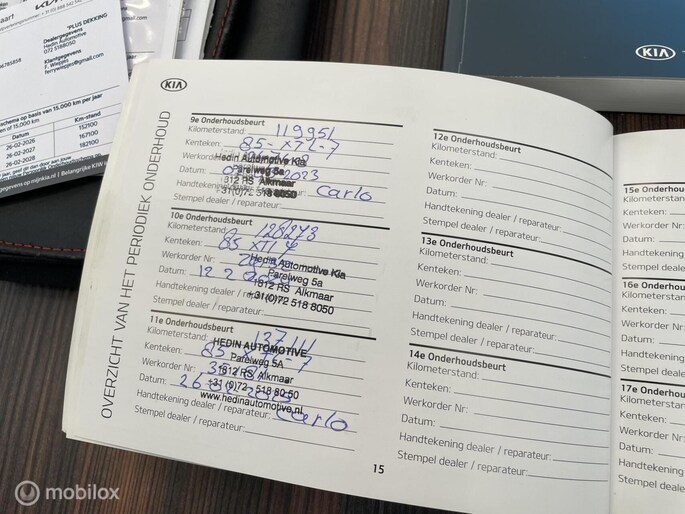 *PLUS DEKKING
Dealergegevens
Hedin Automotive
072 5188050
Klantgegevens
F. Wiepjes
schema op basis van 15.000 km per jaar
of 15.000
Datum
Km-stand
26-02-2026
152100
26-02-2027
167100
26-02-2028
182100
KIA
KIA
OVERZICHT VAN HET PERIODIEK ONDERHOUD
9e Onderhoudsbeurt
Kilometerstand: 119951
Kenteken: 85-XTL-7
Werkorder
Hedin Automotive Kia
Parelweg 5a
Datum: 2023
1812 RS Alkmaar
Handtekening Carlo
+31(0)72 518 8050
Stempel dealer / reparateur:
10e Onderhoudsbeurt
Kilometerstand: 128273
Kenteken: 85 XTL 7
Werkorder Nr:
Hedin Automotive Kia
Parelweg 5a
Datum: 12 2
1812 RS Alkmaar
Handtekening dealer /
+31(0)72 518 8050
Stempel dealer / reparateur:
11e Onderhoudsbeurt
Kilometerstand: 137111
HEDIN AUTOMOTIVE
Kenteken: 85
Parelweg 5A
Werkorder Nr:
1812 RS Alkmaar
Datum: 26
+31 (0)72 - 518 80 50
www.hedinautomotive.nl
Handtekening dealer / reparateur: Carlo
Stempel dealer / reparateur:
12e Onderhoudsbeurt
Kilometerstand:
Kenteken:
Werkorder Nr:
Datum:
Handtekening dealer / reparateur:
Stempel dealer / reparateur:
13e Onderhoudsbeurt
Kilometerstand:
Kenteken:
Werkorder Nr:
Datum:
Handtekening dealer / reparateur:
Stempel dealer / reparateur:
14e Onderhoudsbeurt
Kilometerstand:
Kenteken:
Werkorder Nr:
Datum:
Handtekening dealer / reparateur:
Stempel dealer / reparateur:
15
15e Onderhoudsb
Kilometerstand:
Kenteken:
Werkorder Nr:
Datum:
Handtekening dea
Stempel dealer / r
16e Onderhoudsb
Kilometerstand:
Kenteken:
Werkorder Nr:
Datum:
Handtekening
Stempel dealer /
17e Onderhouds
Kilometerstand:
Kenteken:
Werkorder Nr:
Datum:
Handtekening de
Stempel dealer
mobilox